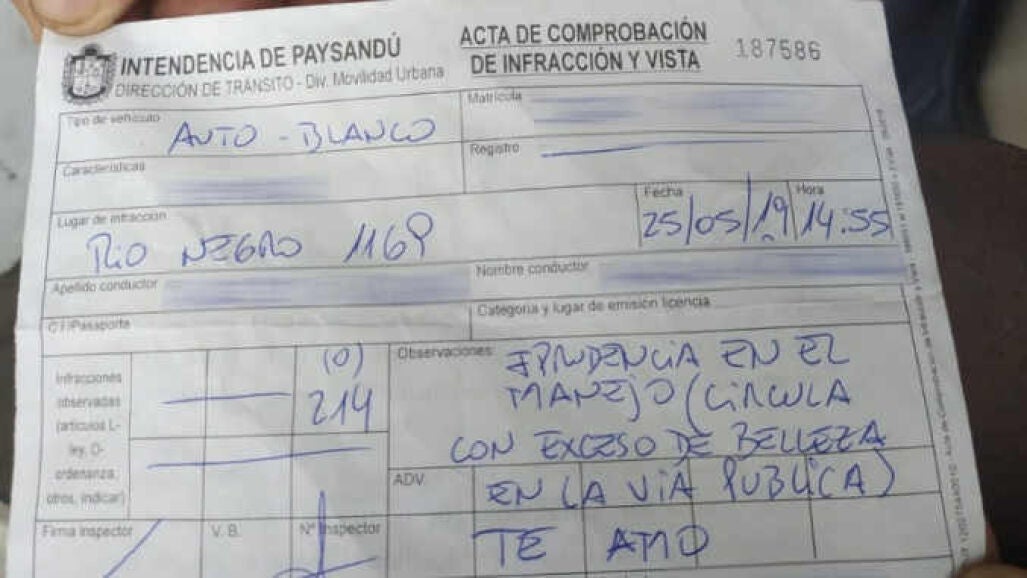 INTENDENCIA DE PAYSANDÚ
DIRECCIÓN DE TRÁNSITO - Div. Movilidad Urbana
ACTA DE COMPROBACIÓN
DE INFRACCIÓN Y VISTA
187586
Tipo de vehículo
AUTO - BLANCO
Matrícula
Características
Registro
Lugar de infracción
RIO NEGRO 1169
Fecha
25/05/19
Hora
14:55
Apellido conductor
Nombre conductor
C.I/Pasaporte
Categoría y lugar de emisión licencia
Infracciones
observadas
(artículos L-
ley, O-
ordenanza,
otros, indicar)
(O)
214
Observaciones
EN EL
MANEJO (CIRCULA
CON EXCESO DE BELLEZA
EN LA VIA PUBLICA)
TE AMO
ADV
Firma inspector
V. B.
Nº Inspector